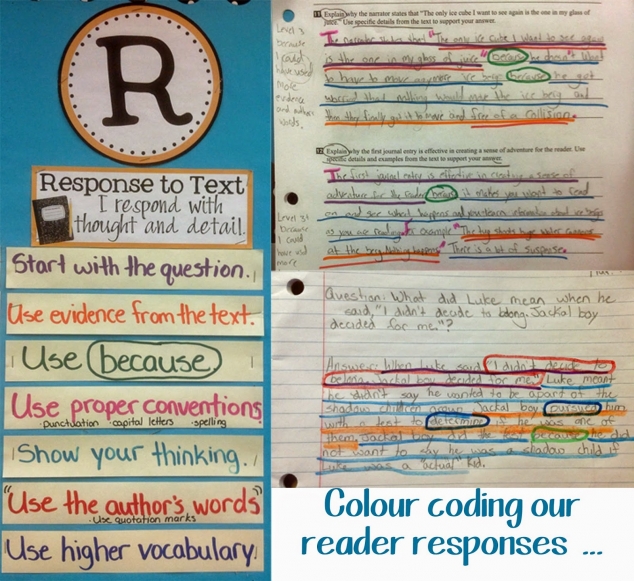 R
Response to Text
I respond with
thought and detail.
Start with the question.
Use evidence from the text.
Use because
Use proper conventions
· punctuation · capital letters · spelling
Show your thinking.
"Use the author's words"
· Use quotation marks
Use higher vocabulary
11 Explain why the narrator states that "The only ice cube I want to see again is the one in my glass of
juice." Use specific details from the text to support your answer.
The narrator states that "The only ice cube I want to see again
is the one in my glass of juice" because he doesn't want
to have to move anymore ice bergs because he got
worried that nothing would move the ice berg and
then they finally got it to move and free of a collision.
Level 3
because
I could
have used
more
evidence
and author
words.
12 Explain why the first journal entry is effective in creating a sense of adventure for the reader. Use
specific details and examples from the text to support your answer.
The first journal entry is effective in creating a sense of
adventure for the reader because it makes you want to read
on and see what happens and you learn information about ice bergs
as you are reading. For example "The tug shoots huge water cannons
at the berg. Nothing happens" There is a lot of suspense.
Level 3+
because
I could
have
more
Question: What did Luke mean when he
said, "I didn't decide to belong. Jackal boy
decided for me."?
Answer: When Luke said, "I didn't decide to
belong. Jackal boy decided for me." Luke meant
he didn't say he wanted to be apart of the
shadow children group. Jackal boy pursured him
with a test to determine if he was one of
them. Jackal boy did the test because he did
not want to say he was a shadow child if
Luke was a "actual" kid.
Colour coding our
reader responses ...